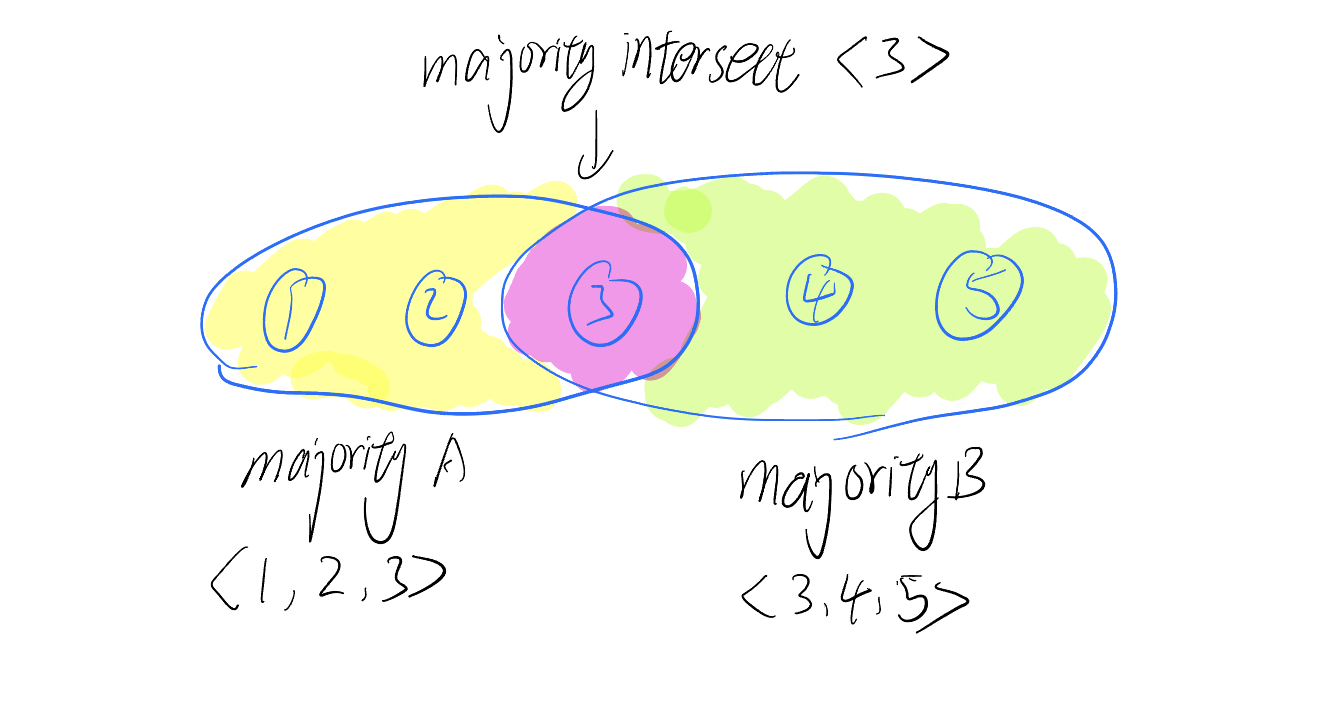 majority intersect <3>
1 2 3 4 5
majority A
<1, 2, 3>
majority B
<3, 4, 5>